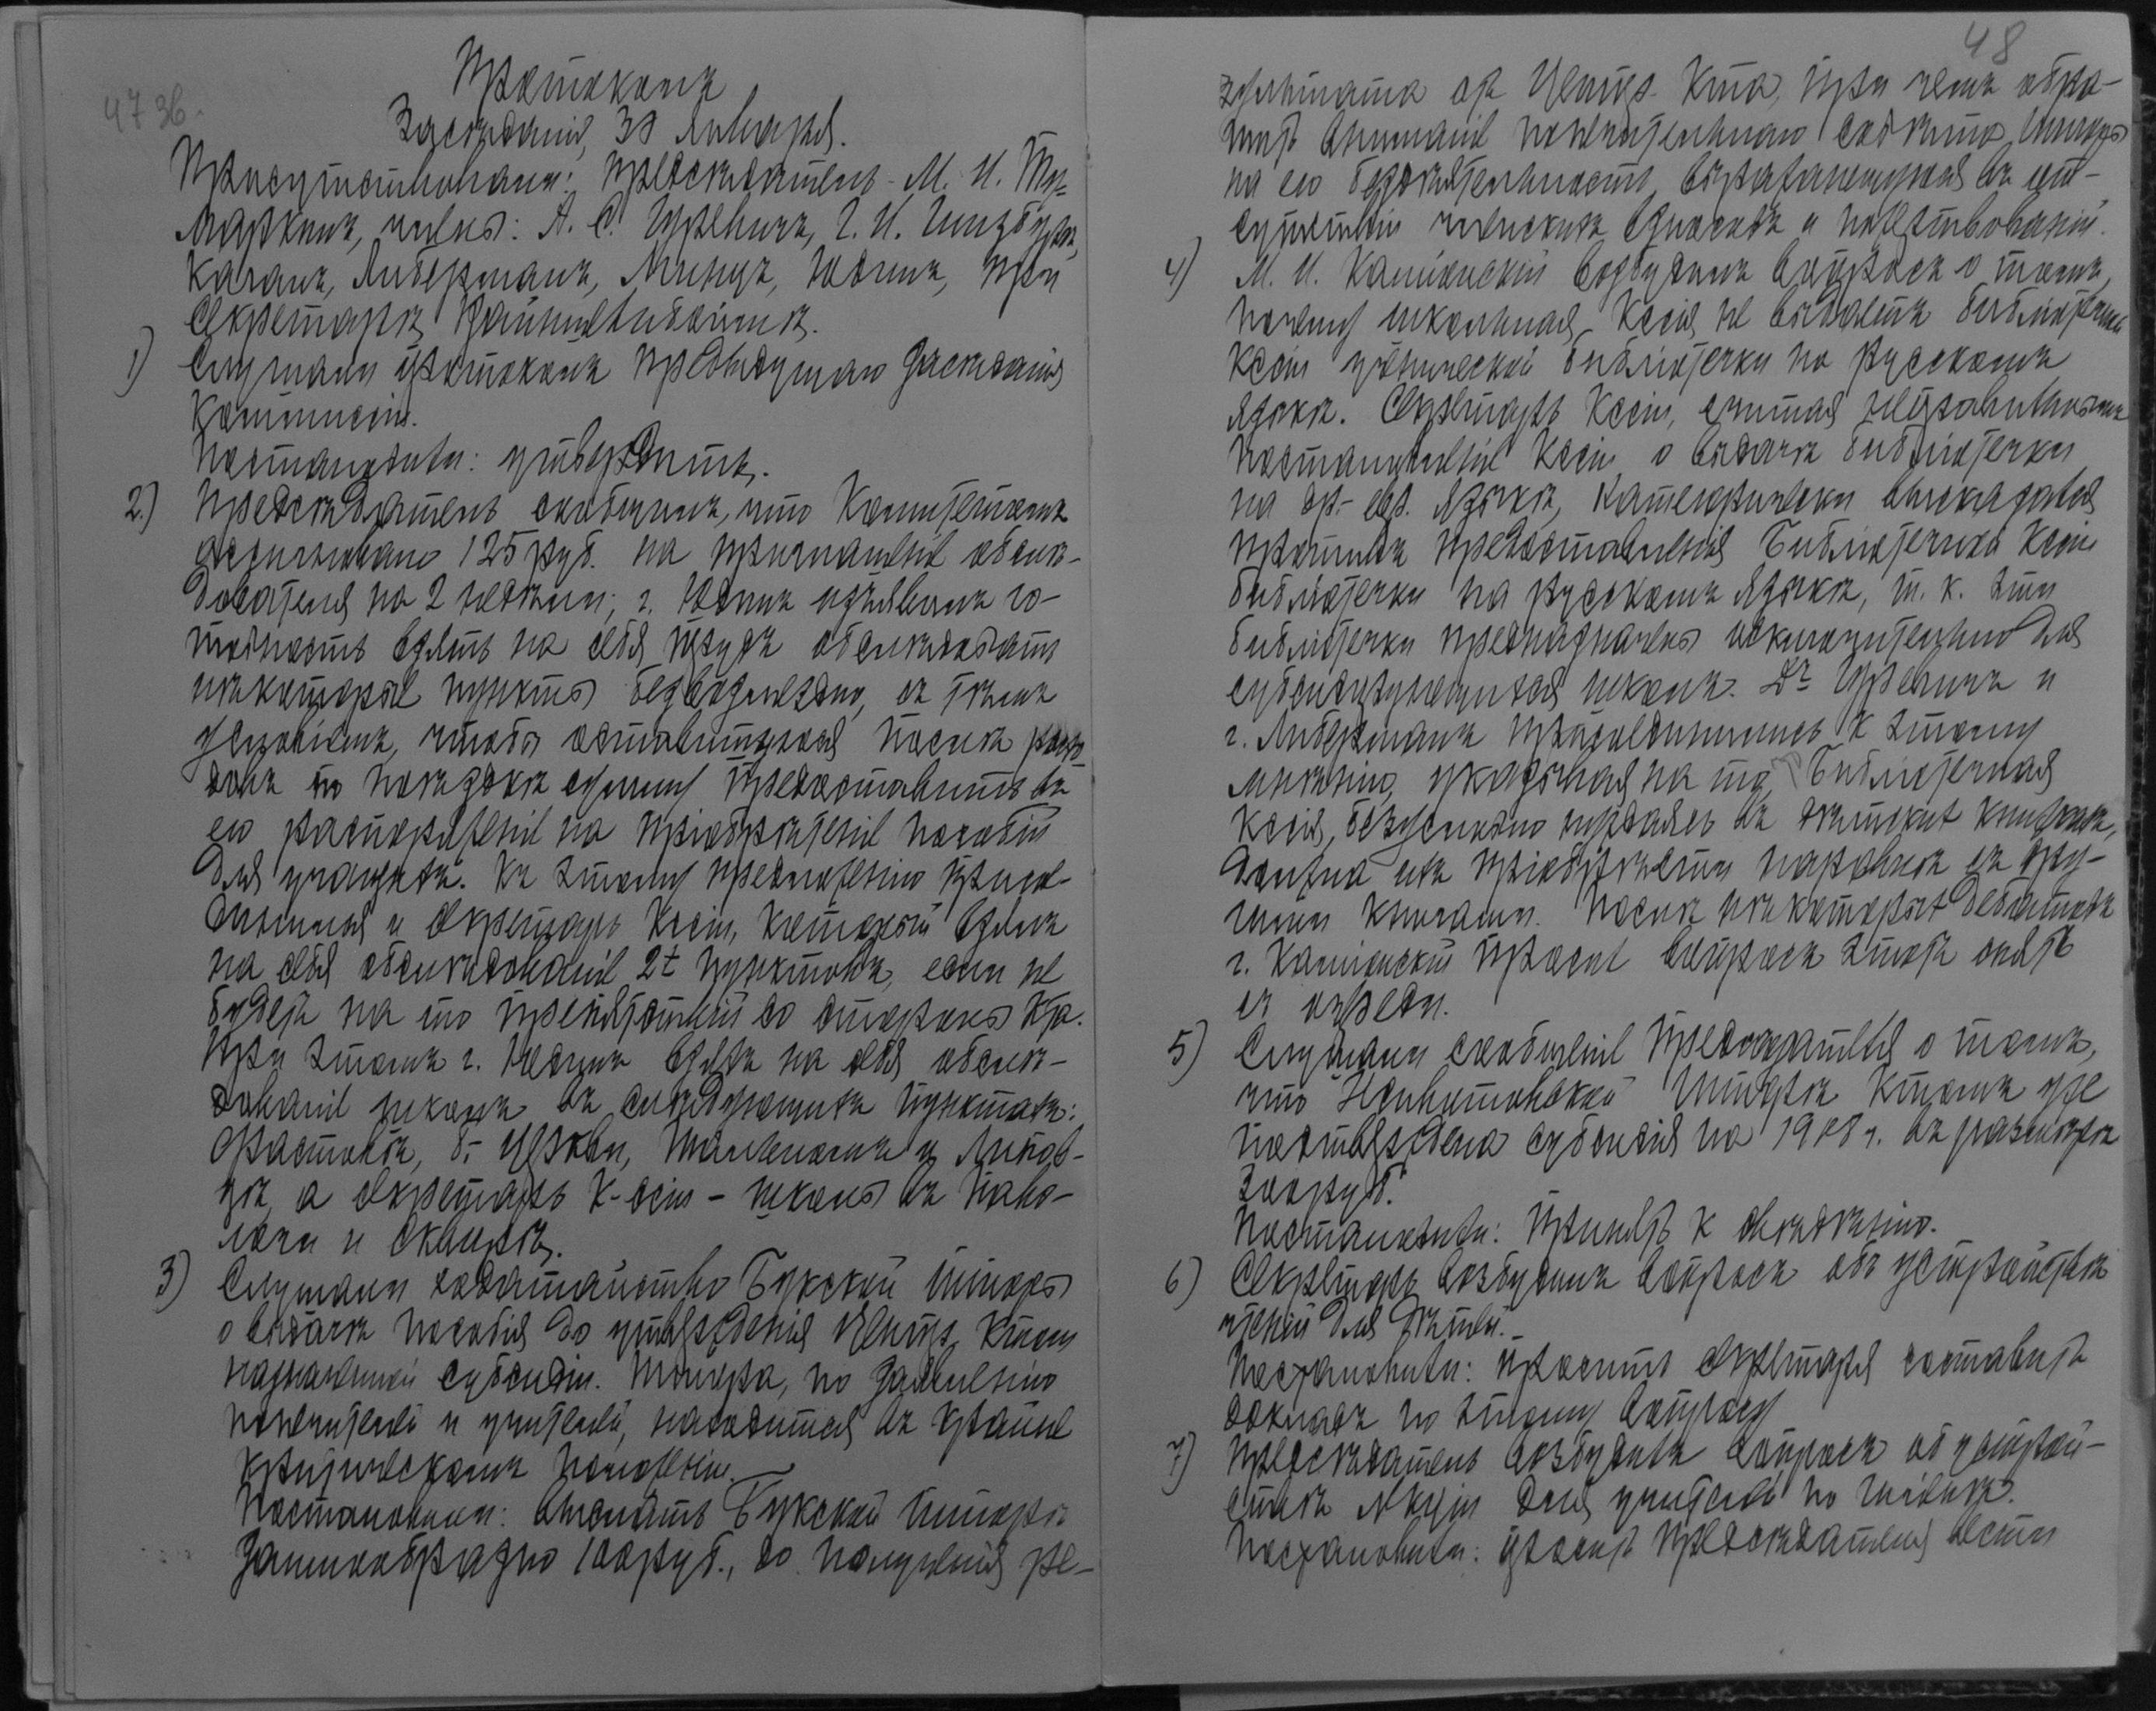 47 зв.
Протоколъ
Засѣданія, 30 Января.
Присутствовали: Предсѣдатель - М. И.
члены: А. С. Гуревичъ, Г. И. Гинзбургъ,
Каганъ, Либерманъ, Минцъ, Юдинъ, при
Секретарѣ
1) Слушали протоколъ предыдущаго засѣданія
Коммиссіи.
Постановили: утвердить.
2.) Предсѣдатель сообщилъ, что Комитетомъ
ассигновано 125 руб. на приглашеніе обслѣ-
дователя на 2 недѣли; г. Юдинъ изъявилъ го-
товность взять на себя трудъ обслѣдовать
нѣкоторые пункты безвозмездно, съ тѣмъ
условіемъ, чтобы оставшуюся послѣ расхо-
довъ по поѣздкѣ сумму предоставить въ
его распоряженіе на пріобрѣтеніе пособій
для учащихъ. Къ этому предложенію присое-
динился и секретарь Ксіи, который взялъ
на себя обслѣдованіе 2х пунктовъ, если не
будетъ на то препятствій со стороны Кта.
При этомъ г. Юдинъ взялъ на себя обслѣ-
дованіе школъ въ слѣдующихъ пунктахъ:
Фастовъ, Б. Церкви, и Липов-
цѣ, а секретарь К-ссіи - школы въ Паво-
лочи и Сквирѣ.
3) Слушали ходатайство Букской Т.-Торы
о выдачѣ пособія до утвержденія Центр. Ктом
назначенной субсидіи. Т.-Тора, по заявленію
попечителей и учителей, находится въ крайне
критическомъ положеніи.
Постановили: выслать Букской Т.-Торѣ
заимообразно 100 руб., до полученія ре-
48
зультата отъ Центр. Кта, при чемъ обра-
тить вниманіе попечительнаго совѣта Т.-Торы
на его бездѣятельность, выражающуюся въ от-
сутствіи членскихъ взносовъ и пожертвованій.
4) М. И. Каміонскій возбудилъ вопросъ о томъ,
почему школьная Ксія не выдаетъ библіотечн.
Ксіи ученической библіотечки на русскомъ
языкѣ. Секретарь Ксіи, считая неправильнымъ
постановленіе Ксіи о выдачѣ библіотечки
на др.-евр. языкѣ, категорически высказался
противъ предоставленія Библіотечной Ксіи
библіотечки на русскомъ языкѣ, т. к. эти
библіотечки предназначены исключительно для
субсидирующихся школъ. Дъ Гуревичъ и
г. Либерманъ присоединились къ этому
мнѣнію, указывая на то, что Библіотечная
Ксія, безусловно нуждаясь въ дѣтскихъ книжкахъ,
должна ихъ пріобрѣсти наравнѣ съ дру-
гими книгами. Послѣ нѣкоторыхъ дебатовъ
г. Каміонскій просилъ вопросъ этотъ снять
съ очереди.
5) Слушали сообщеніе Предсѣдателя о томъ,
что Т.-Торѣ Ктомъ уже
подтверждена субсидія на 1908 г. въ размѣрѣ
300 руб.
Постановили: Принять къ свѣдѣнію.
6) Секретарь возбудилъ вопросъ объ устройствѣ
чтеній для дѣтей.
Постановили: просить секретаря составить
докладъ по этому вопросу
7) Предсѣдатель возбудилъ вопросъ объ устрой-
ствѣ лекцій для учителей по гигіенѣ.
Постановили: просить Предсѣдателя вести